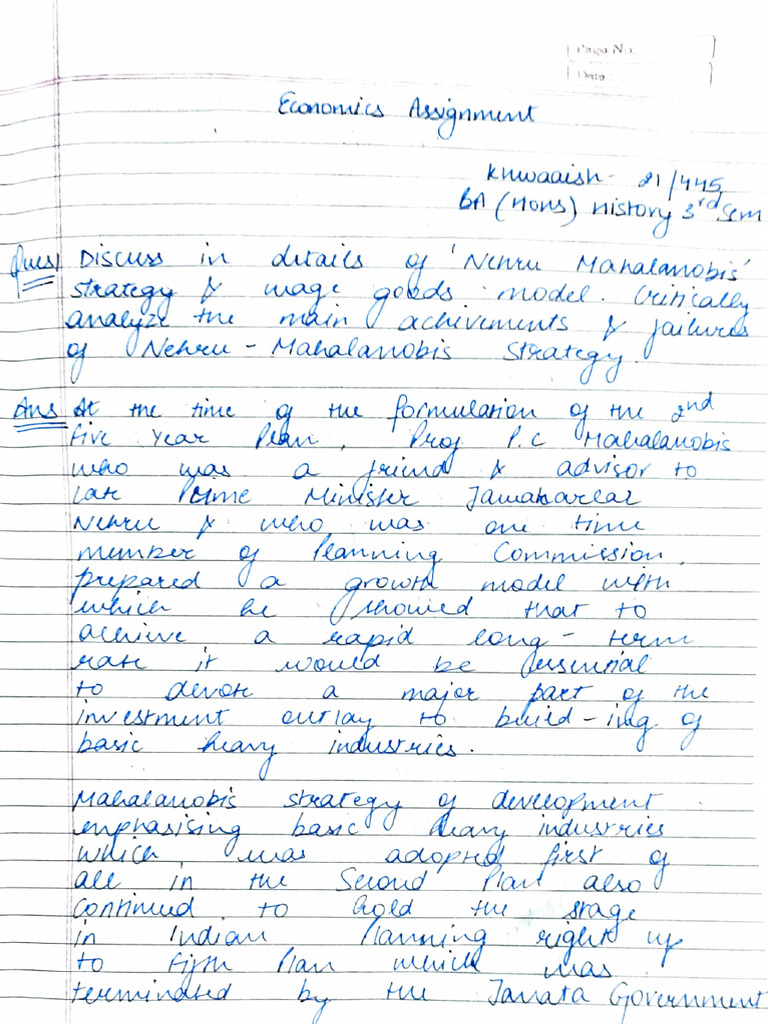 Page No.
Date
Economics Assignment
Khwaaish - 21/445
BA (Hons) History 3rd Sem
Ques Discuss in details of 'Nehru Mahalanobis'
strategy & wage goods model. Critically
analyze the main achivements & failures
of Nehru - Mahalanobis strategy.
Ans At the time of the formulation of the 2nd
five Year Plan, Prof P.C Mahalanobis
who was a friend & advisor to
late Prime Minister Jawaharlal
Nehru & who was one time
member of Planning Commission,
prepared a growth model with
which he showed that to
achieve a rapid long-term
rate it would be essential
to devote a major part of the
investment outlay to build-ing of
basic heavy industries.
Mahalanobis strategy of development
emphasising basic heavy industries
which was adopted first of
all in the Second Plan also
continued to hold the stage
in Indian Planning right up
to fifth Plan which was
terminated by the Janata Government